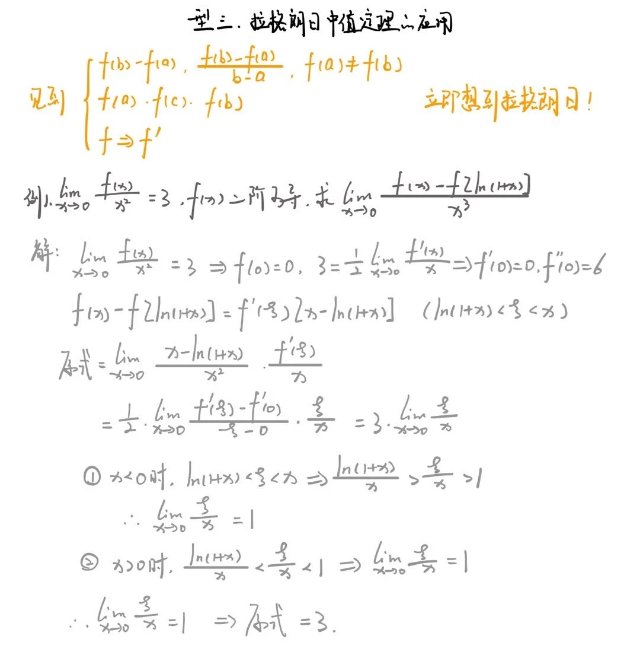 型三. 拉格朗日中值定理的应用
见到 { f(b)-f(a), \frac{f(b)-f(a)}{b-a}, f(a)≠f(b)
f(a). f(c). f(b) 立即想到拉格朗日!
f ⇒ f'
例1. \lim_{x→0} \frac{f(x)}{x^2} = 3 , f(x)二阶可导, 求 \lim_{x→0} \frac{f(x)-f[ln(1+x)]}{x^3}
解: \lim_{x→0} \frac{f(x)}{x^2} = 3 ⇒ f(0)=0, 3=\frac{1}{2}\lim_{x→0} \frac{f'(x)}{x} ⇒ f'(0)=0, f''(0)=6
f(x)-f[ln(1+x)] = f'(ξ)[x-ln(1+x)] (ln(1+x)<ξ<x)
原式 = \lim_{x→0} \frac{x-ln(1+x)}{x^2} · \frac{f'(ξ)}{x}
= \frac{1}{2} · \lim_{x→0} \frac{f'(ξ)-f'(0)}{ξ-0} · \frac{ξ}{x} = 3·\lim_{x→0} \frac{ξ}{x}
① x<0时, ln(1+x)<ξ<x ⇒ \frac{ln(1+x)}{x} > \frac{ξ}{x} > 1
∴ \lim_{x→0} \frac{ξ}{x} = 1
② x>0时, \frac{ln(1+x)}{x} < \frac{ξ}{x} < 1 ⇒ \lim_{x→0} \frac{ξ}{x} = 1
∴ \lim_{x→0} \frac{ξ}{x} = 1 ⇒ 原式 = 3.